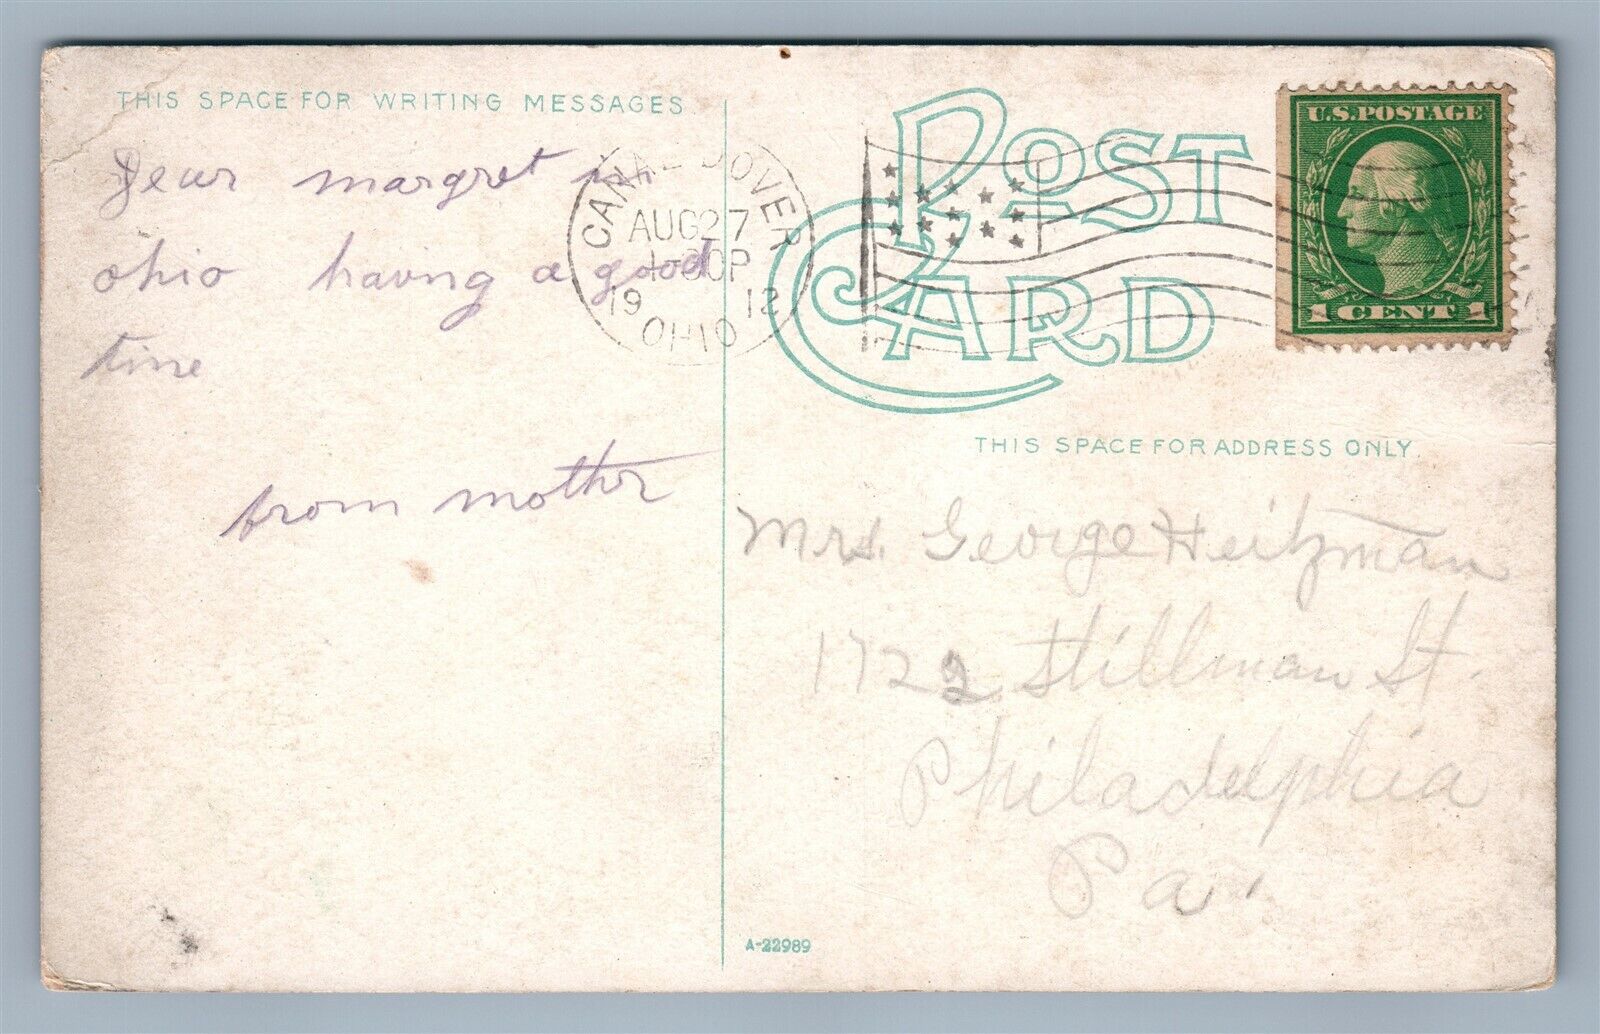 THIS SPACE FOR WRITING MESSAGES
Dear margret in
ohio having a good
time
from mother
CANAL DOVER
AUG 27
1912
OHIO
POST CARD
U.S. POSTAGE
1 CENT 1
THIS SPACE FOR ADDRESS ONLY.
Mrs. George Heitzman
1722 Stillman St.
Philadelphia
Pa.
A-22989